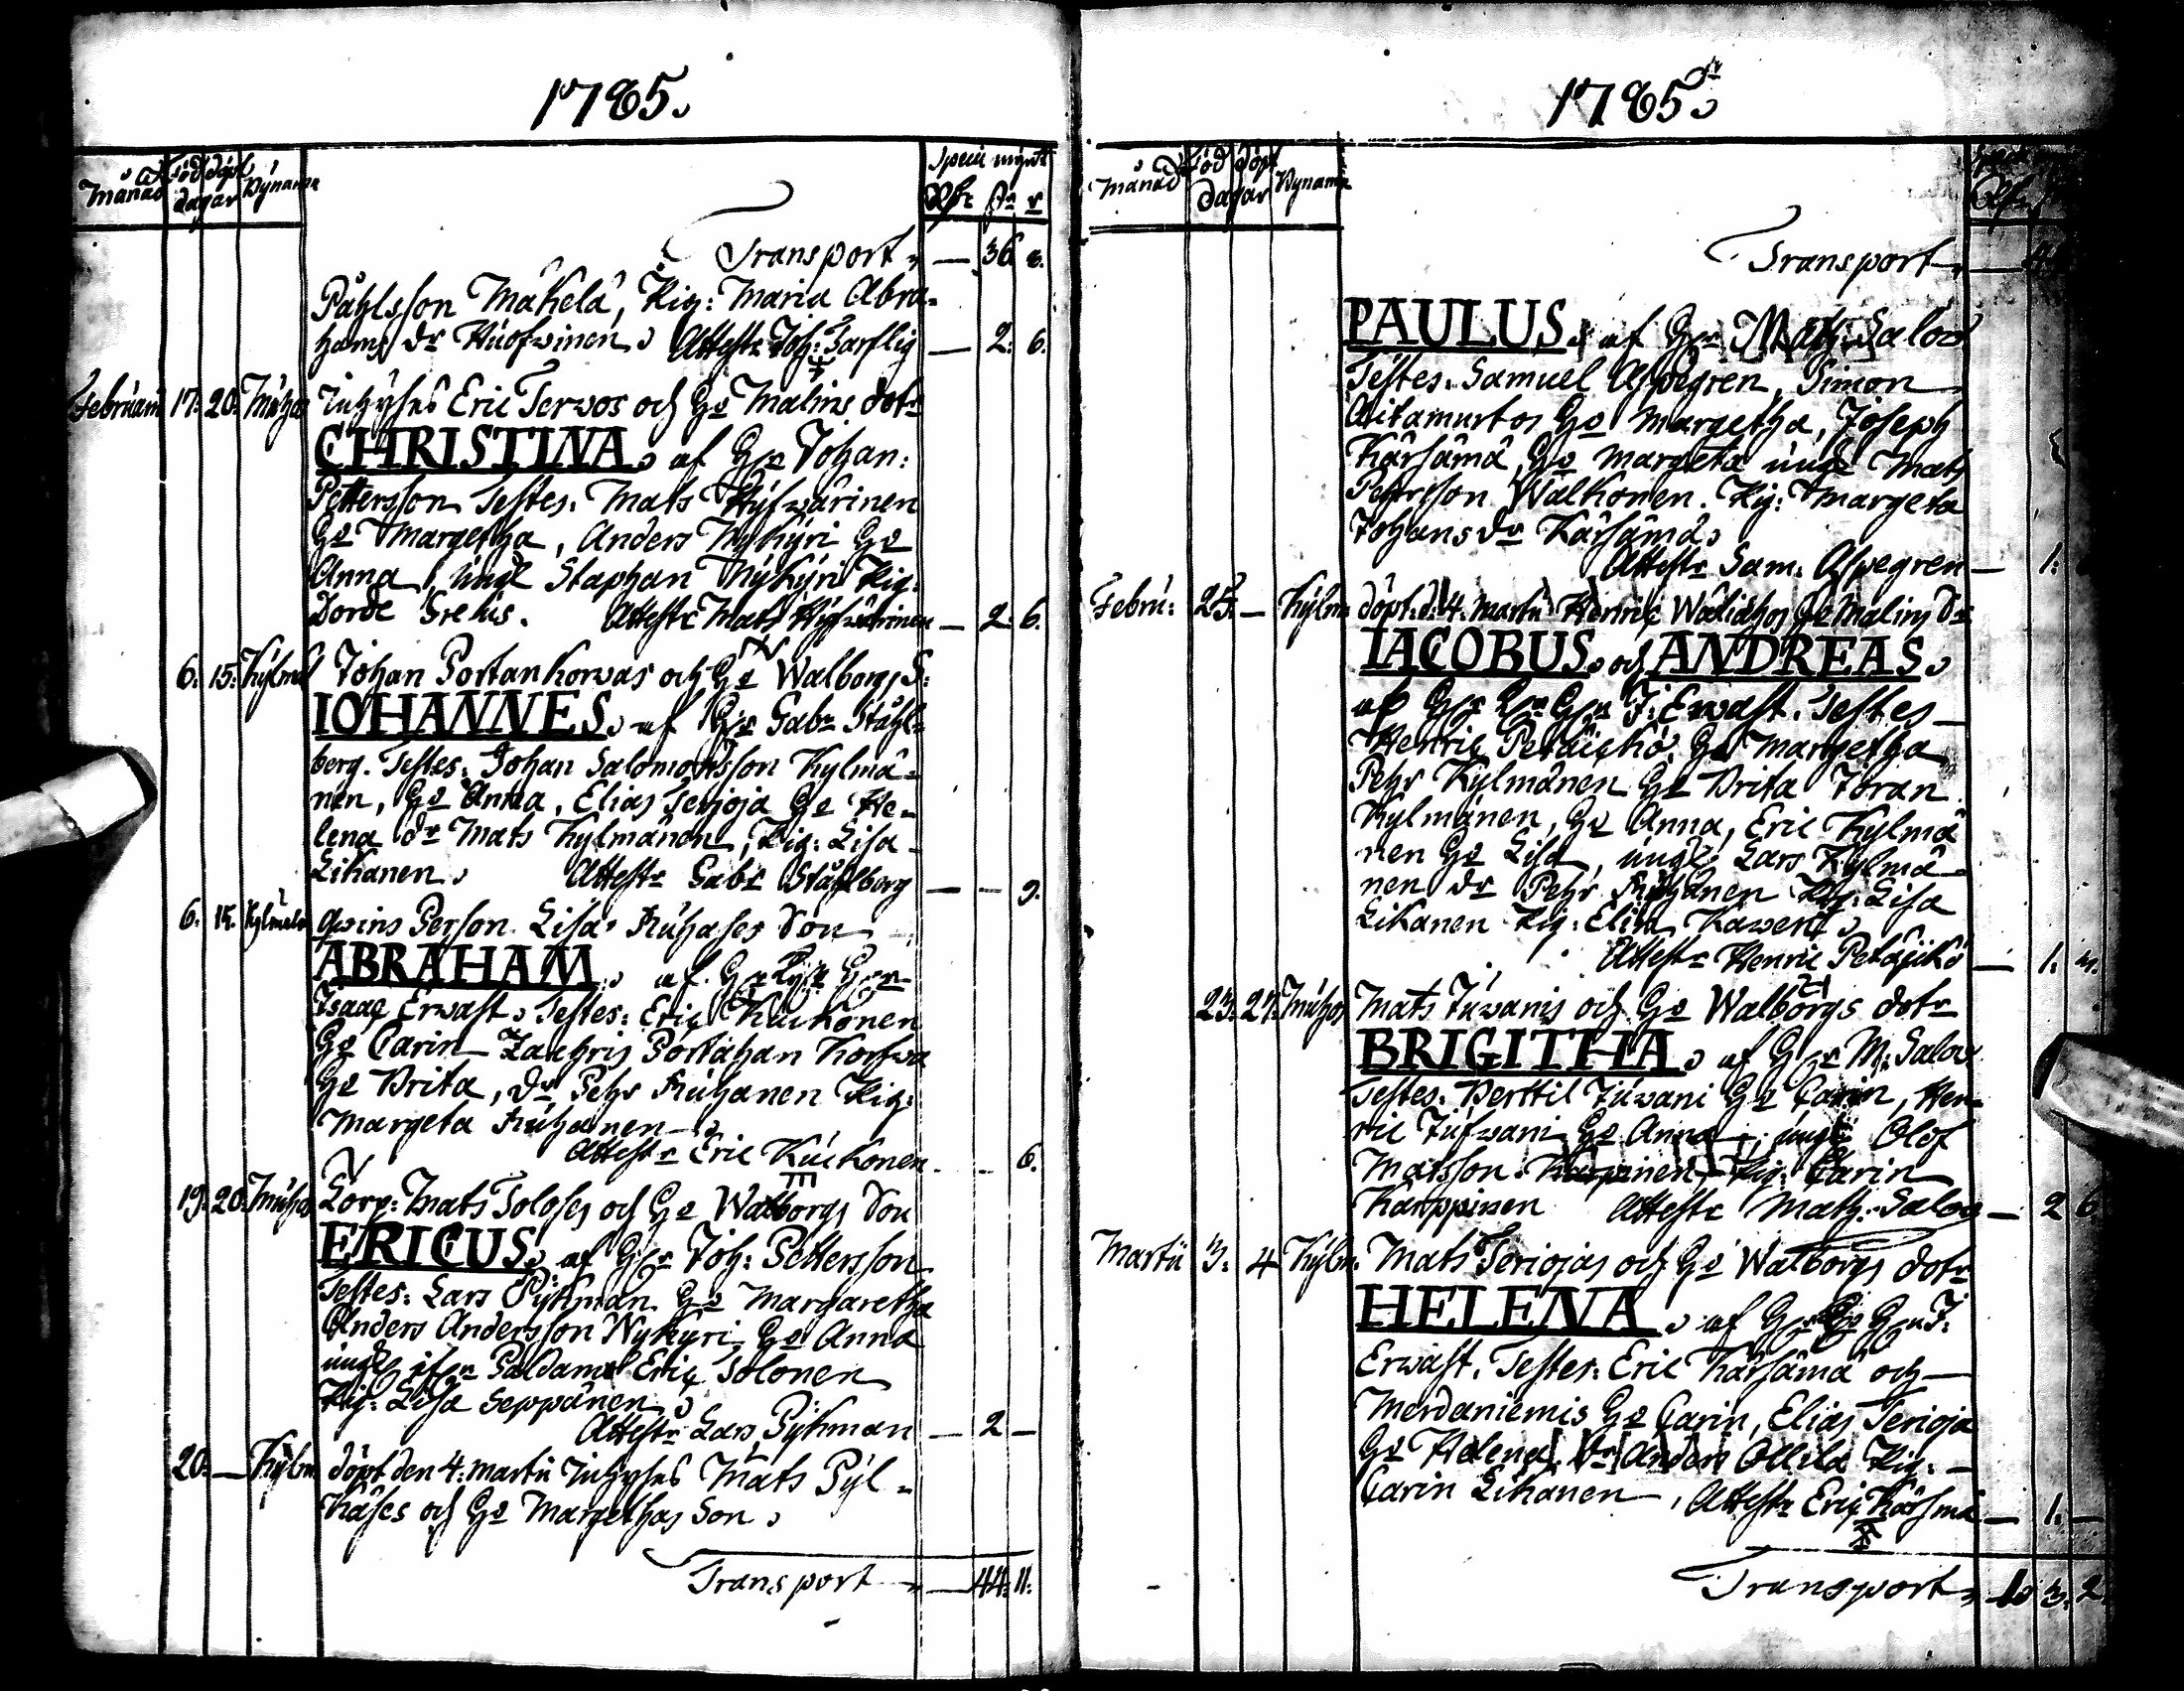 1785.
Månad Föd döpt Bÿnamn Specie mynt
dagar Rdr sk r
Transport — 36 8.
Påhlsson Mäkelä, Pig: Maria Abra-
hams dr Huofwinen. Attestr Joh: Tarflig — 2. 6.
Februarii 17. 20. Muhos Inhÿses Eric Terwos och Ho Malins dotr
CHRISTINA af Hr Johan:
Pettersson Testes. Mats Hÿfwärinen
Ho Margetha, Anders Nÿkÿri Ho
Anna, ungl Staphan Nÿkÿri Pig:
Dorde Grekus. Attestr Mats Hÿfwärinen — 2. 6.
6. 15. Kÿlmäl Johan Portankorwas och Ho Walborgs S:
IOHANNES af Hr Gabr Ståhl-
berg. Testes. Johan Salomonsson Kylmä-
nen, Ho Anna, Elias Terioja Ho He-
lena dr Mats Kylmänen, Pig: Lisa
Likanen. Attestr Gabr Ståhlberg — — 9.
6. 15. Kylmälä qwins Person Lisa Kuhases Son
ABRAHAM af
Isaac Erwast. Testes: Eric Kuikonen
Ho Carin Zachris Portahan Korfwa
Ho Brita, dr Pehr Kuhanen Pig:
Margeta Kuhanen
Attestr Eric Kuikonen — 6.
19. 20. Muhos Torp: Mats Toloses och Ho Walborgs Son
ERICUS af Hr Joh: Pettersson
Testes: Lars Pÿhman Ho Margaretha
Anders Andersson Nykyri, Ho Anna
ungl Paldamel Eric Tolonen
Pig: Lisa Seppänen
Attestr Lars Pÿhman — 2 —
20. — Kÿlm döpt den 4: Martii Inhyses Mats Pÿl-
käses och Ho Margethas Son.
Transport — 44. 11.
1785
Månad Föd döpt Bynamn
dagar
Transport —
PAULUS af Hr Math: Salow
Testes. Samuel Aspegren, Simon
Aitamurtos Ho Margetha, Joseph
Kärsämä, Ho Margeta ungl Mats
Pehrsson Walkonen. Pig: Margeta
Johans dr Kärsämä
Attestr Sam. Aspegren — 1.
Febru: 25. — Kÿlm döpt d. 4. Martii Henric Wäliahos Ho Malins Sr
IACOBUS och ANDREAS
af J: Erwast. Testes
Henric Petäjikö Ho Margetha
Pehr Kylmänen Ho Brita Joran
Kylmänen, Ho Anna, Eric Kylmä
nen Ho Lisa, ungl Lars Kylmä-
nen dr Pehr Kuhanen Pig: Lisa
Likanen Pig: Elisa
Attestr Henric Petäjikö — 1.
23. 27. Muhos Mats Juwanis och Ho Walborgs dotr
BRIGITHA af Hr M: Salow
Testes. Berttil Juwani Ho Carin, Hen-
ric Jufwani Ho Anna, ungl Olof
Matsson Karpinen Pig: Carin
Karppinen Attestr Math: Salow — 2 6
Martii 3. 4 Kÿlm. Mats Teriojas och Ho Walborgs dotr
HELENA af J:
Erwast. Testes: Eric Kärsämä och
Merdaniemis Ho Carin, Elias Terioja
Ho Helena Dr Anders Ollila Pig:
Carin Likanen, Attestr Eric Kärsmä — 1. —
Transport 3. 2.